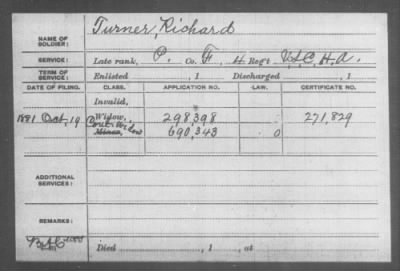 NAME OF SOLDIER: Turner, Richard
SERVICE: Late rank, P. Co. F, H Regt U.S.C.H.A.
TERM OF SERVICE: Enlisted , 1 Discharged , 1
DATE OF FILING. CLASS. APPLICATION NO. LAW. CERTIFICATE NO.
Invalid,
1881 Oct, 19 Widow, 298,398 271,829
Cont. Widow
Minor, 690,343 0
ADDITIONAL SERVICES:
REMARKS:
Died , 1 , at